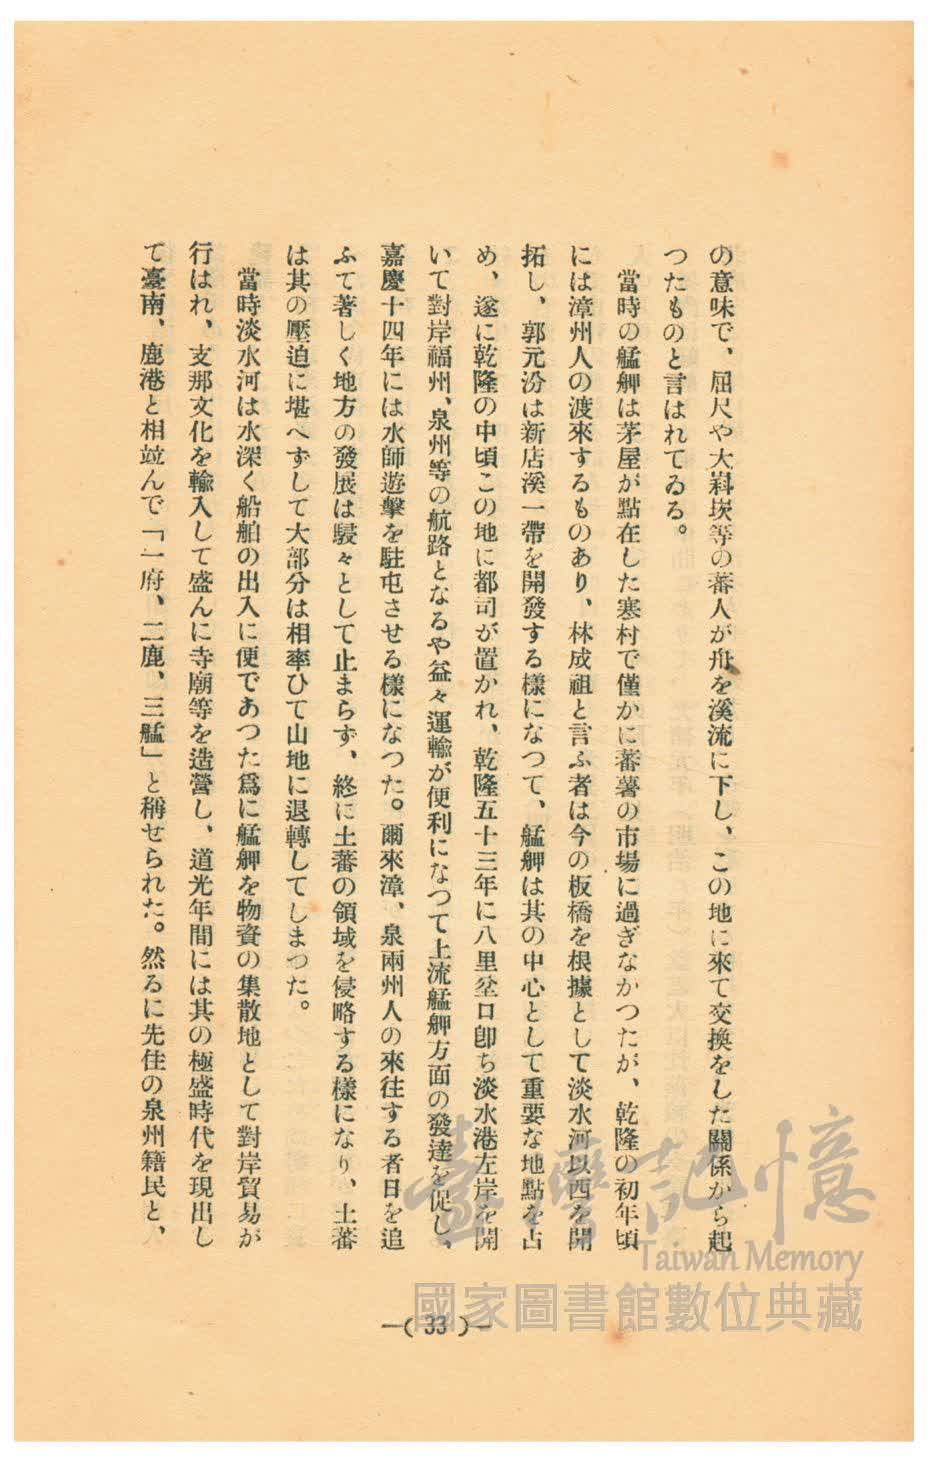 の意味で、屈尺や大嵙崁等の蕃人が舟を溪流に下し、この地に來て交換をした關係から起
つたものと言はれてゐる。
當時の艋舺は茅屋が點在した寒村で僅かに蕃薯の市場に過ぎなかつたが、乾隆の初年頃
には漳州人の渡來するものあり、林成祖と言ふ者は今の板橋を根據として淡水河以西を開
拓し、郭元汾は新店溪一帶を開發する樣になつて、艋舺は其の中心として重要な地點を占
め、遂に乾隆の中頃この地に都司が置かれ、乾隆五十三年に八里坌口卽ち淡水港左岸を開
いて對岸福州、泉州等の航路となるや益々運輸が便利になつて上流艋舺方面の發達を促し、
嘉慶十四年には水師遊擊を駐屯させる樣になつた。爾來漳、泉兩州人の來往する者日を追
ふて著しく地方の發展は駸々として止まらず、終に土蕃の領域を侵略する樣になり、土蕃
は其の壓迫に堪へずして大部分は相率ひて山地に退轉してしまつた。
當時淡水河は水深く船舶の出入に便であつた爲に艋舺を物資の集散地として對岸貿易が
行はれ、支那文化を輸入して盛んに寺廟等を造營し、道光年間には其の極盛時代を現出し
て臺南、鹿港と相竝んで「一府、二鹿、三艋」と稱せられた。然るに先住の泉州籍民と、
—( 33 )—
臺灣記憶
Taiwan Memory
國家圖書館數位典藏